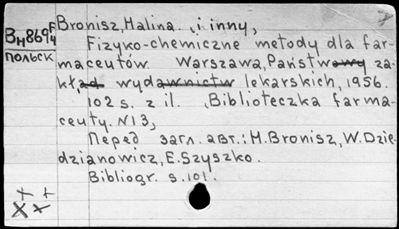 Bronisz, Halina. i inny,
Вн869ч
F
польск
Fizyko-chemiczne metody dla far-
maceutów. Warszawa, Państwowy za-
kład wydawnictw lekarskich, 1956.
102 s. z il. (Biblioteczka farma-
ceuty. N13)
Перед загл. авт.: H. Bronisz, W. Dzie-
dzianowicz, E. Szyszko.
Bibliogr. s. 101.